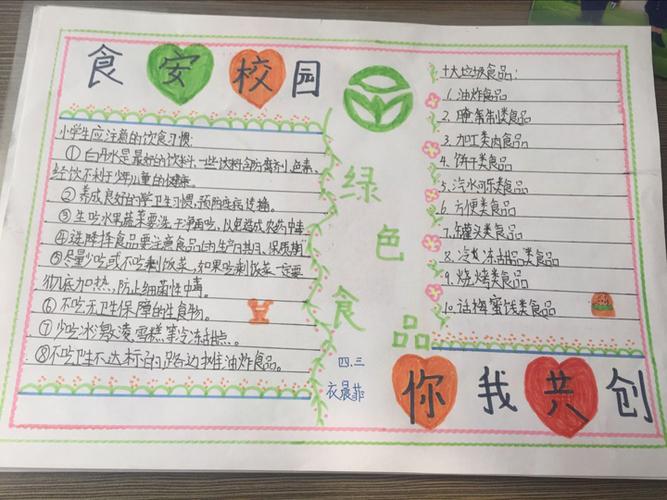 食安校园
小学生应注意的饮食习惯:
①白开水是最好的饮料,一些饮料含防腐剂、色素,
经饮不利于少年儿童的健康。
②养成良好的学卫生习惯,预防疾病
③生吃水果蔬菜要洗干净再吃,以免造成农药中毒
④选择食品要注意食品的生产日期、保质期
⑤尽量少吃或不吃剩饭菜,如果吃剩饭菜一定要
彻底加热,防止细菌性中毒。
⑥不吃无卫生保障的生食物。
⑦少吃冰激凌雪糕等冷冻甜点。
⑧不吃卫生不达标的路边摊油炸食品。
绿色食品
四.三
衣晨菲
十大垃圾食品:
1.油炸食品
2.腌制类食品
3.加工类肉食品
4.饼干类食品
5.汽水可乐类食品
6.方便类食品
7.罐头类食品
8.冷冻甜品类食品
9.烧烤类食品
10.话梅蜜饯类食品
你我共创